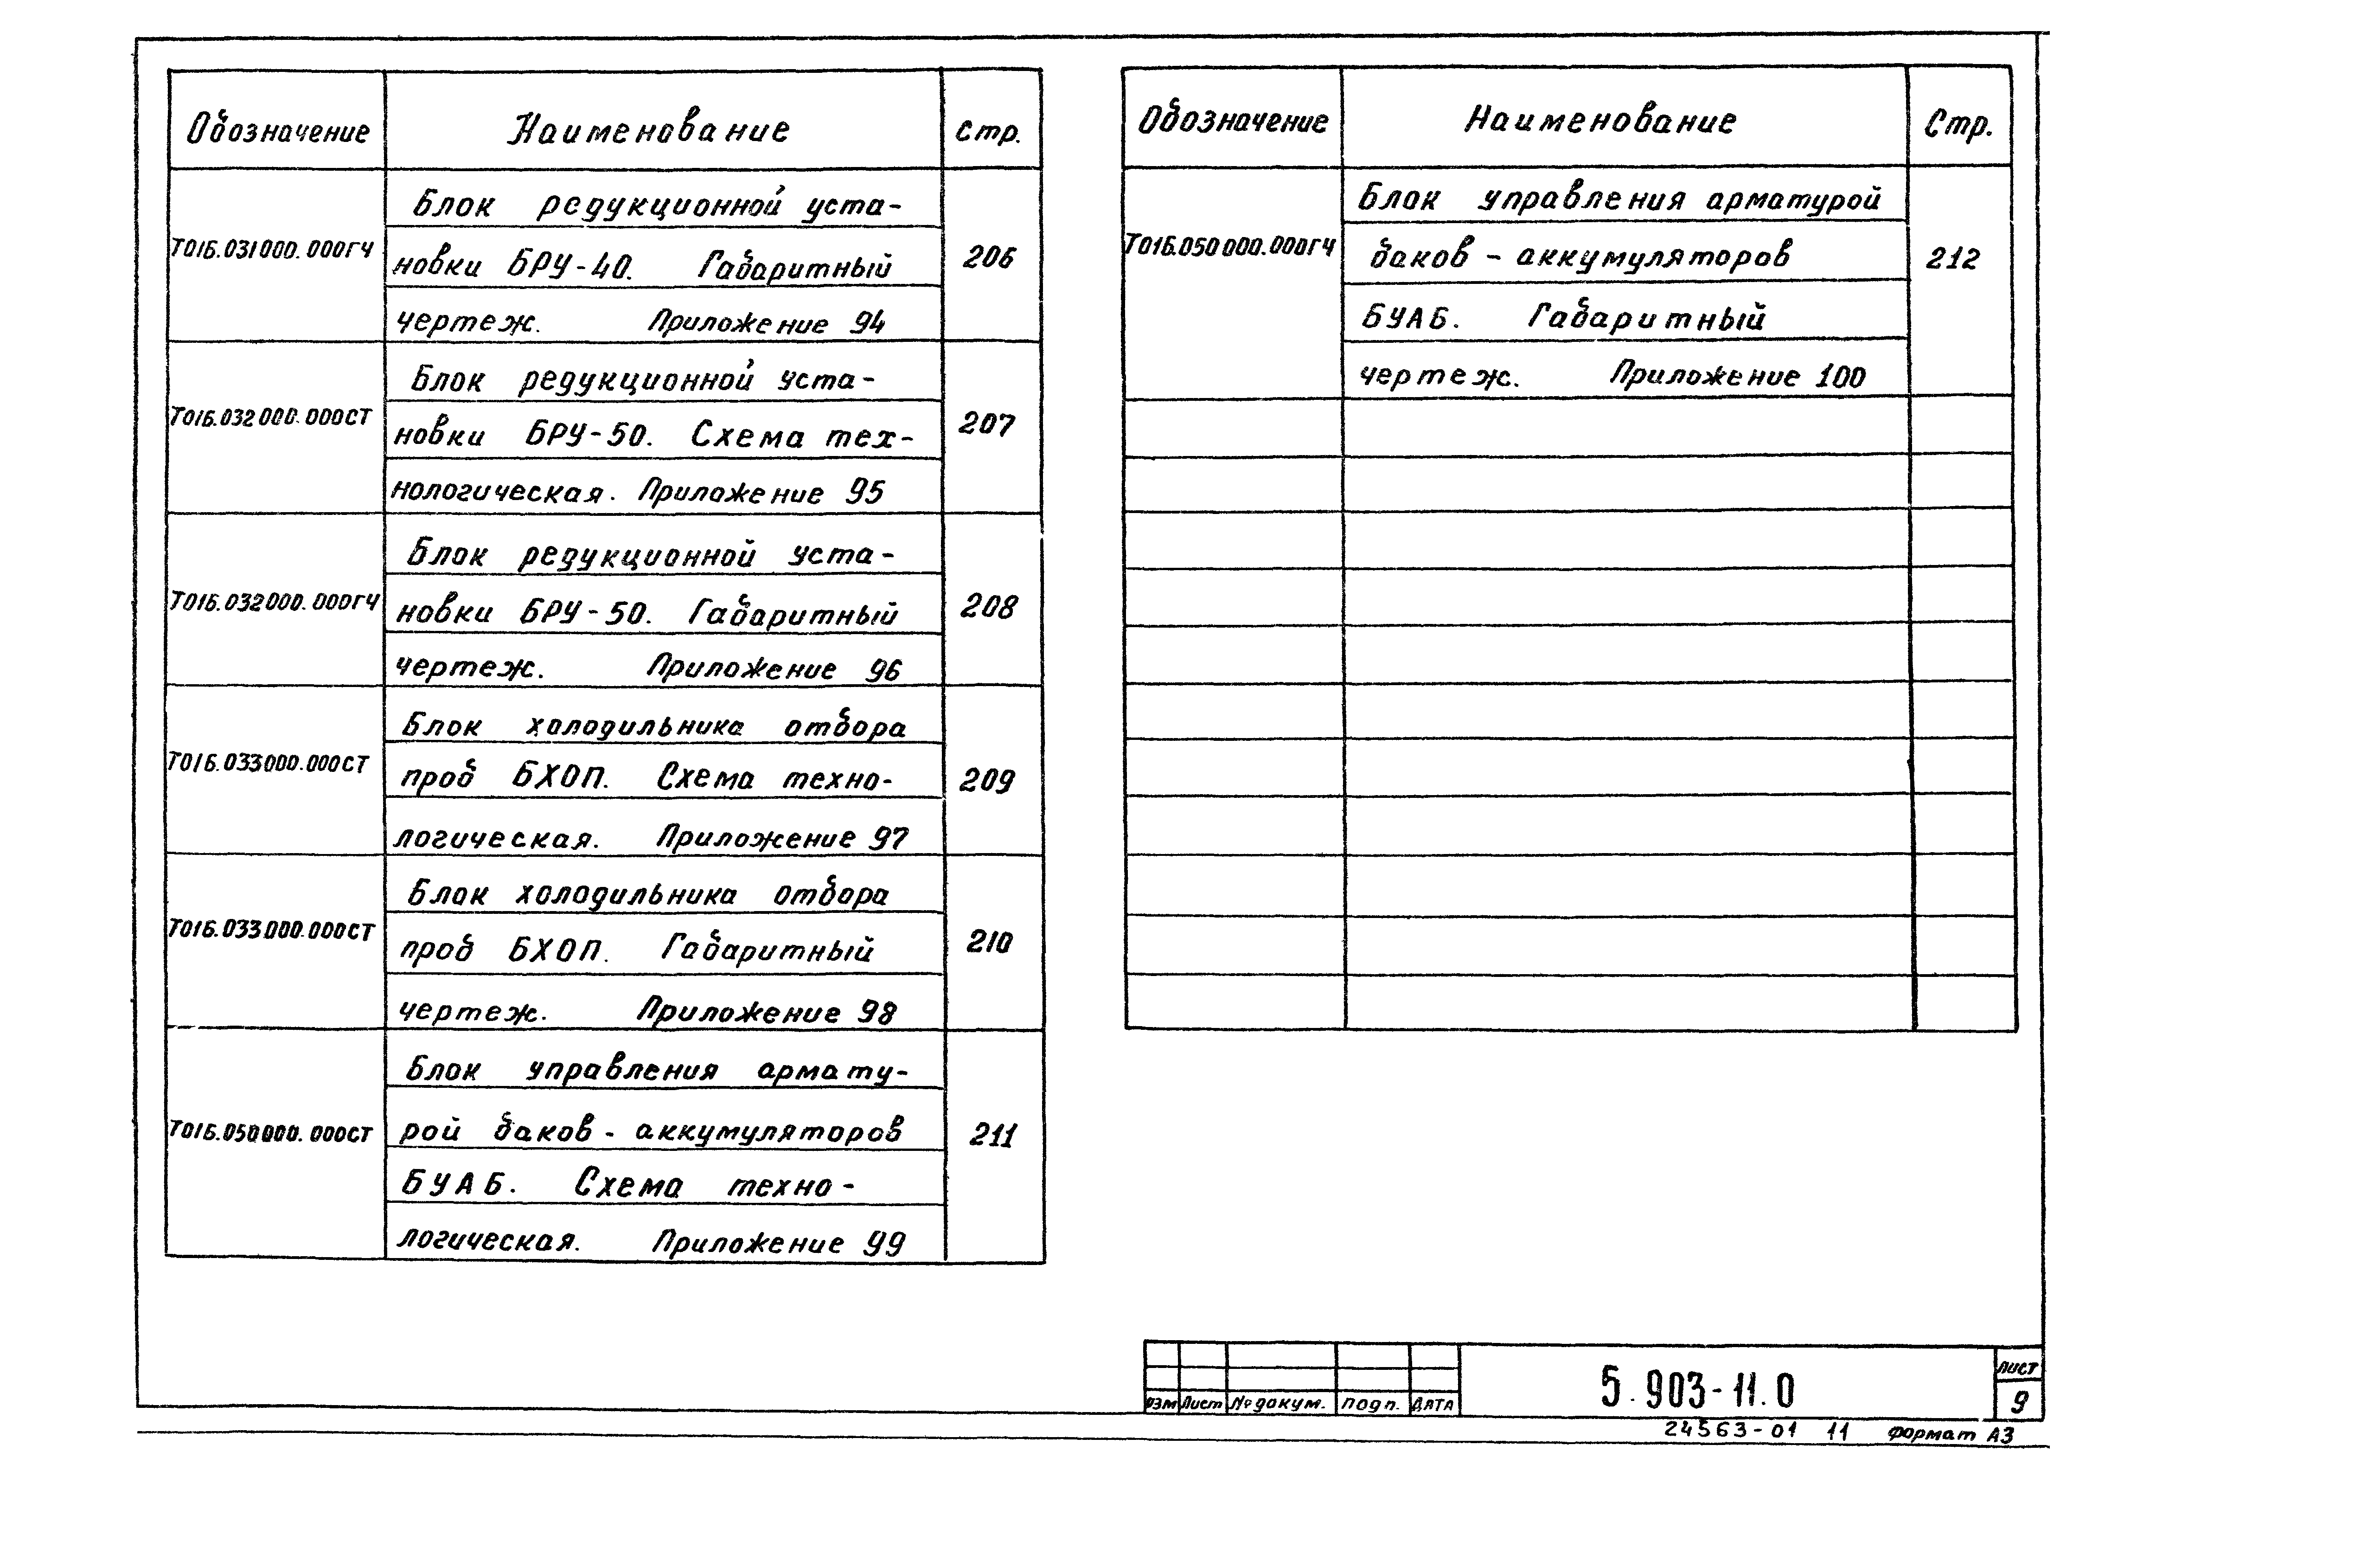 Обозначение Наименование Стр.
Блок редукционной уста-
Т016.031000.000ГЧ новки БРУ-40. Габаритный 206
чертеж. Приложение 94
Блок редукционной уста-
Т016.032000.000СТ новки БРУ-50. Схема тех- 207
нологическая. Приложение 95
Блок редукционной уста-
Т016.032000.000ГЧ новки БРУ-50. Габаритный 208
чертеж. Приложение 96
Блок холодильника отбора
Т016.033000.000СТ проб БХОП. Схема техно- 209
логическая. Приложение 97
Блок холодильника отбора
Т016.033000.000СТ проб БХОП. Габаритный 210
чертеж. Приложение 98
Блок управления армату-
Т016.050000.000СТ рой баков-аккумуляторов 211
БУАБ. Схема техно-
логическая. Приложение 99
Обозначение Наименование Стр.
Блок управления арматурой
Т016.050000.000ГЧ баков-аккумуляторов 212
БУАБ. Габаритный
чертеж. Приложение 100
Изм Лист № докум. Подп. Дата
5.903-11.0
Лист
9
24563-01 11 Формат А3